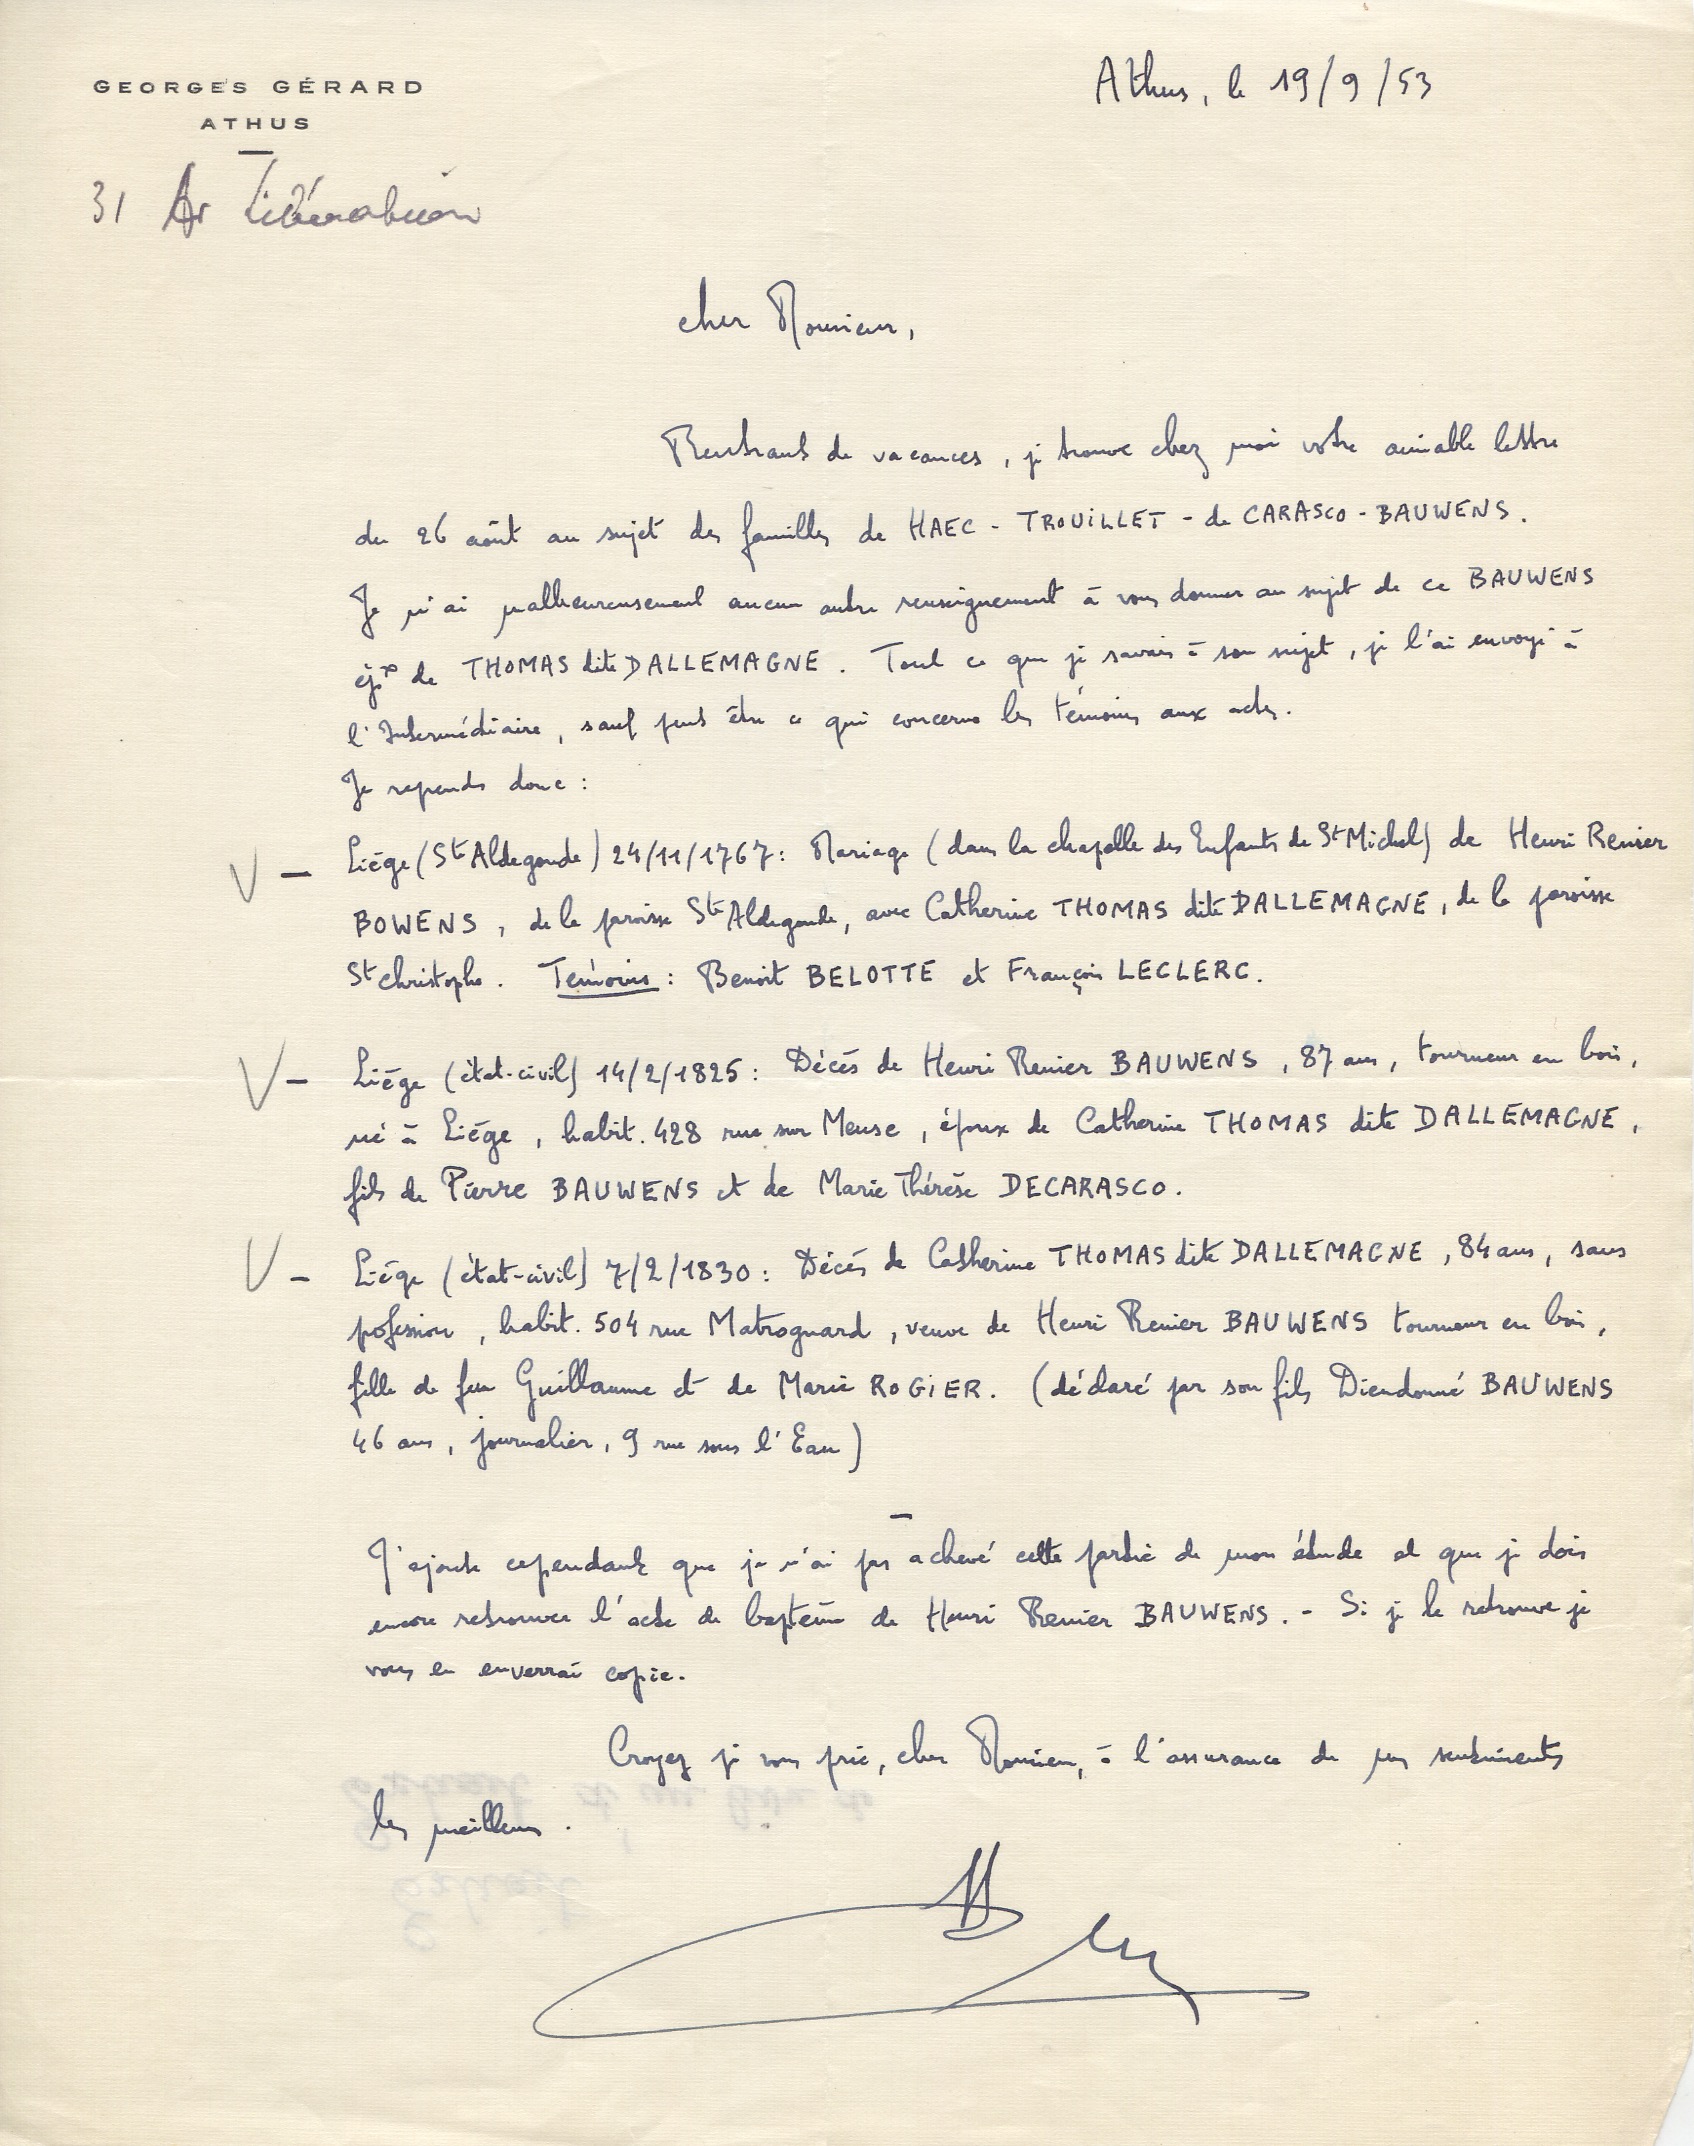 GEORGES GÉRARD
ATHUS
31 Av Libération
Athus, le 19/9/53
cher Monsieur,
Rentrant de vacances, je trouve chez moi votre aimable lettre
du 26 août au sujet des familles de HAEC - TROUILLET - de CARASCO - BAUWENS.
Je n'ai malheureusement aucun autre renseignement à vous donner au sujet de ce BAUWENS
épx de THOMAS dite DALLEMAGNE. Tout ce que je savais à son sujet, je l'ai envoyé à
l'Intermédiaire, sauf peut être ce qui concerne les témoins aux actes.
Je reprends donc :
V - Liége (Ste Aldegonde) 24/11/1767 : Mariage (dans la chapelle des Enfants de St Michel) de Henri Renier
BOWENS, de la paroisse Ste Aldegonde, avec Catherine THOMAS dite DALLEMAGNE, de la paroisse
St Christophe. Témoins : Benoit BELOTTE et François LECLERC.
V - Liége (état-civil) 14/2/1825 : Décès de Henri Renier BAUWENS, 87 ans, tourneur en bois,
né à Liége, habit. 428 rue sur Meuse, époux de Catherine THOMAS dite DALLEMAGNE,
fils de Pierre BAUWENS et de Marie Thérèse DECARASCO.
V - Liége (état-civil) 7/2/1830 : Décès de Catherine THOMAS dite DALLEMAGNE, 84 ans, sans
pofession, habit. 504 rue Matrognard, veuve de Henri Renier BAUWENS tourneur en bois,
fille de feu Guillaume et de Marie ROGIER. (déclaré par son fils Dieudonné BAUWENS
46 ans, journalier, 9 rue sous l'Eau)
J'ajoute cependant que je n'ai pas achevé cette partie de mon étude et que je dois
encore retrouver l'acte de baptême de Henri Renier BAUWENS. - Si je le retrouve je
vous en enverrai copie.
Croyez je vous prie, cher Monsieur, à l'assurance de mes sentiments
les meilleurs.